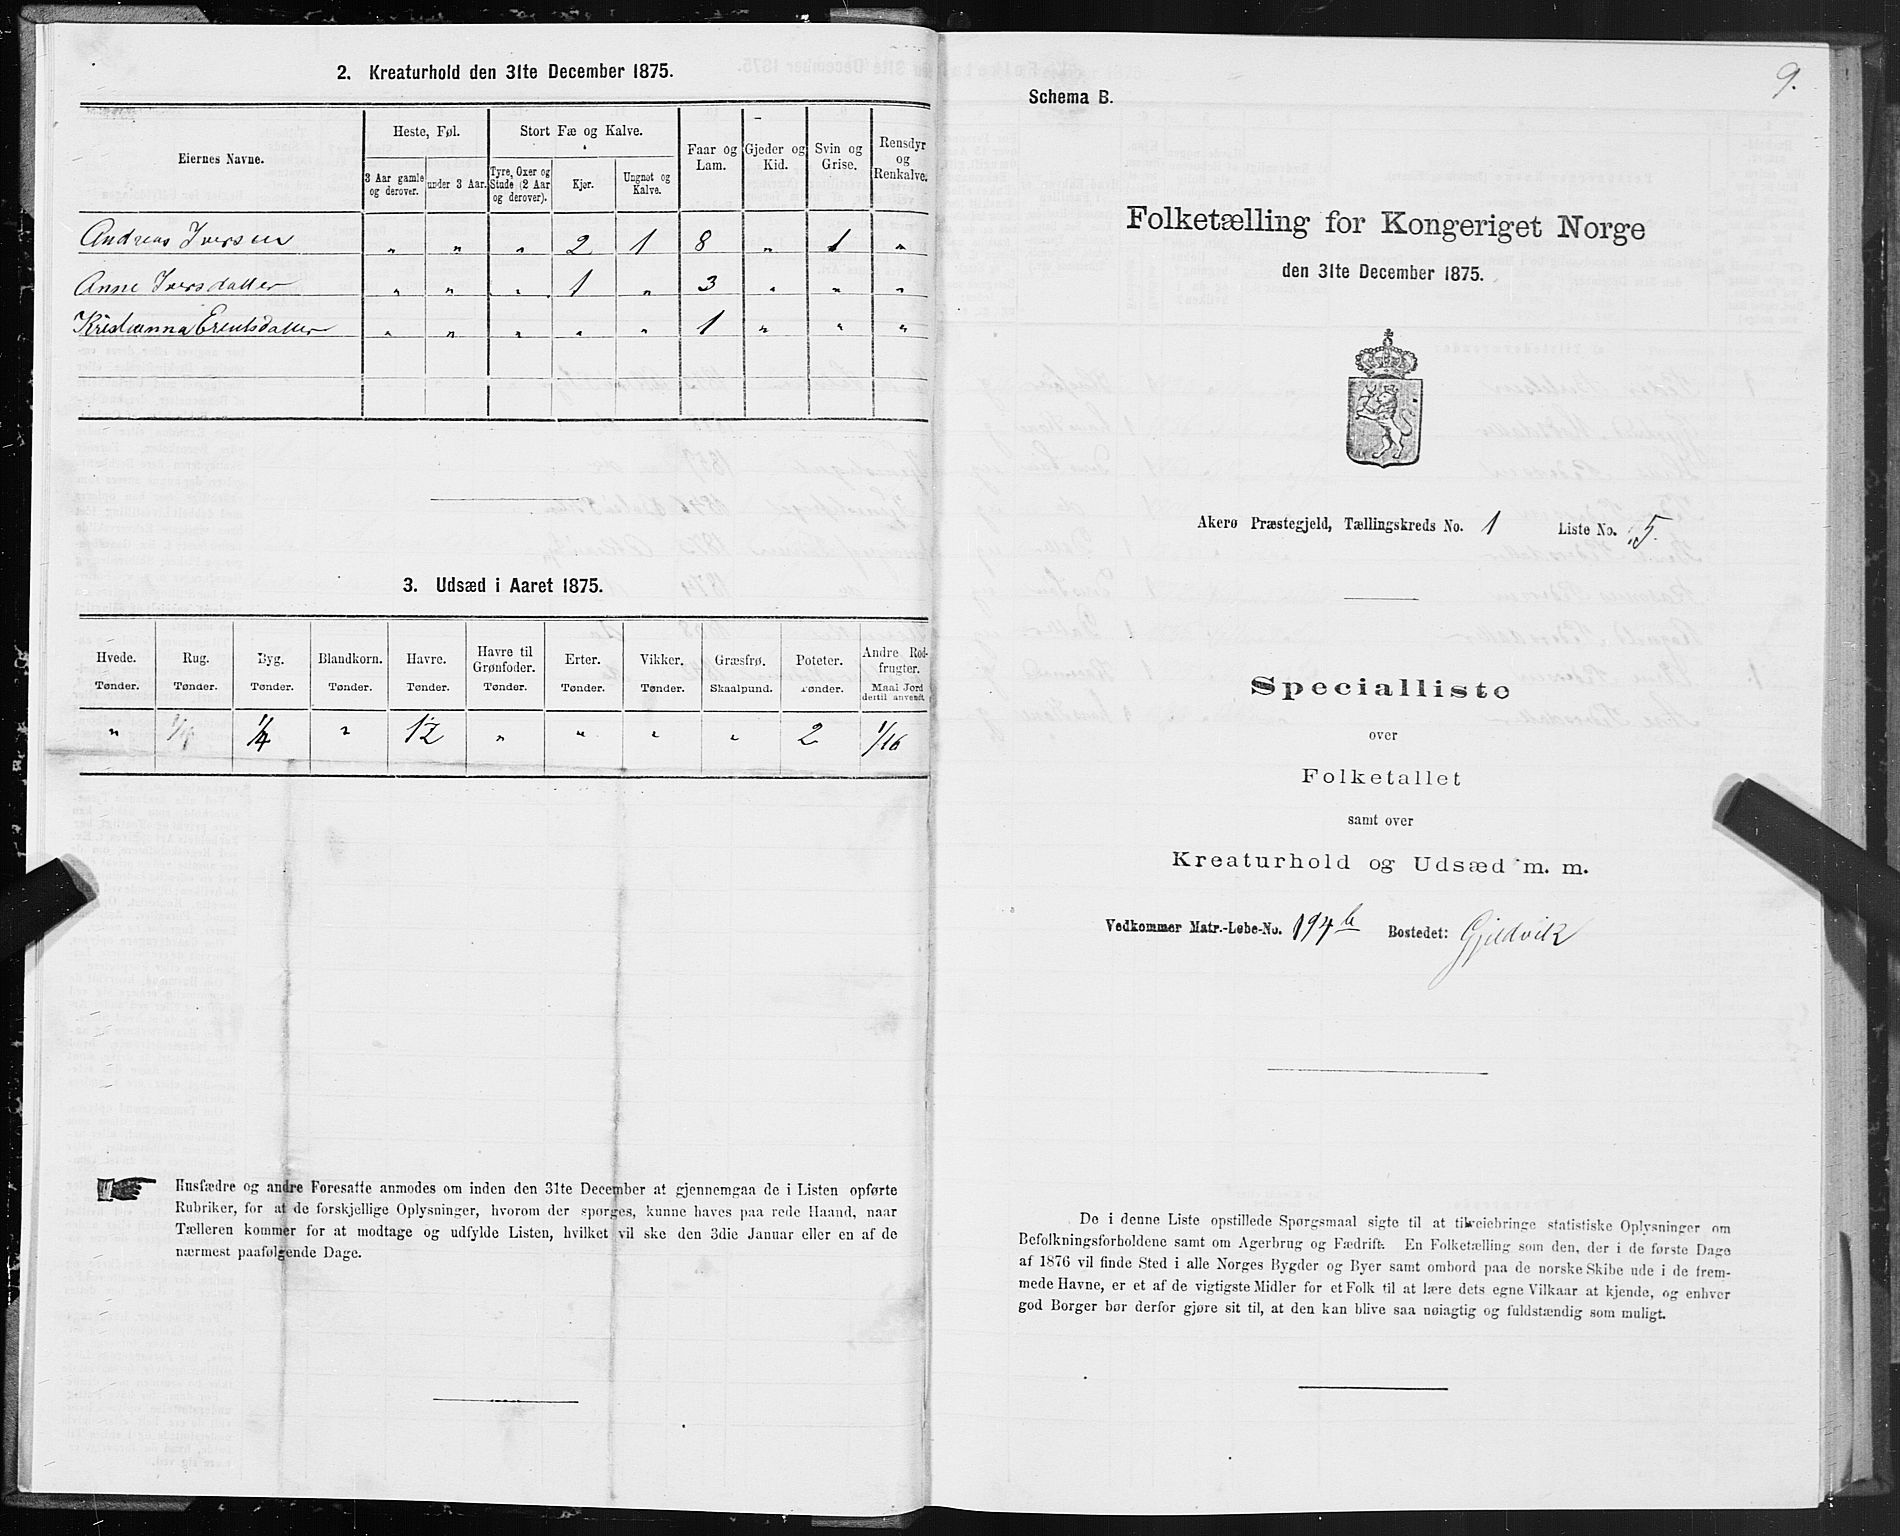 2. Kreaturhold den 31te December 1875.
Eiernes Navne.
Heste, Føl.
Stort Fæ og Kalve.
Faar og Lam.
Gjeder og Kid.
Svin og Grise.
Rensdyr og Renkalve.
3 Aar gamle og derover.
under 3 Aar.
Tyre, Oxer og Stude (2 Aar og derover).
Kjør.
Ungnøt og Kalve.
Andreas Iversen " " " 2 1 8 " 1 "
Anne Iversdatter " " " 1 " 3 " " "
Kristianna Erentsdatter " " " " " 1 " " "
3. Udsæd i Aaret 1875.
Hvede. Rug. Byg. Blandkorn. Havre. Havre til Grønfoder. Erter. Vikker. Græsfrø. Poteter. Andre Rodfrugter.
Tønder. Tønder. Tønder. Tønder. Tønder. Tønder. Tønder. Tønder. Skaalpund. Tønder. Maal Jord dertil anvendt
" 1/4 1/4 " 12 " " " " 2 1/16
Husfædre og andre Foresatte anmodes om inden den 31te December at gjennemgaa de i Listen opførte
Rubriker, for at de forskjellige Oplysninger, hvorom der spørges, kunne haves paa rede Haand, naar
Tælleren kommer for at modtage og udfylde Listen, hvilket vil ske den 3die Januar eller en af de
nærmest paafølgende Dage.
9.
Schema B.
Folketælling for Kongeriget Norge
den 31te December 1875.
Akerø Præstegjeld, Tællingskreds No. 1 Liste No. 5.
Specialliste
over
Folketallet
samt over
Kreaturhold og Udsæd m. m.
Vedkommer Matr.-Løbe-No. 194b Bostedet: Gjeldvik
De i denne Liste opstillede Spørgsmaal sigte til at tilveiebringe statistiske Oplysninger om
Befolkningsforholdene samt om Agerbrug og Fædrift. En Folketælling som den, der i de første Dage
af 1876 vil finde Sted i alle Norges Bygder og Byer samt ombord paa de norske Skibe ude i de frem-
mede Havne, er et af de vigtigste Midler for et Folk til at lære dets egne Vilkaar at kjende, og enhver
god Borger bør derfor gjøre sit til, at den kan blive saa nøiagtig og fuldstændig som muligt.